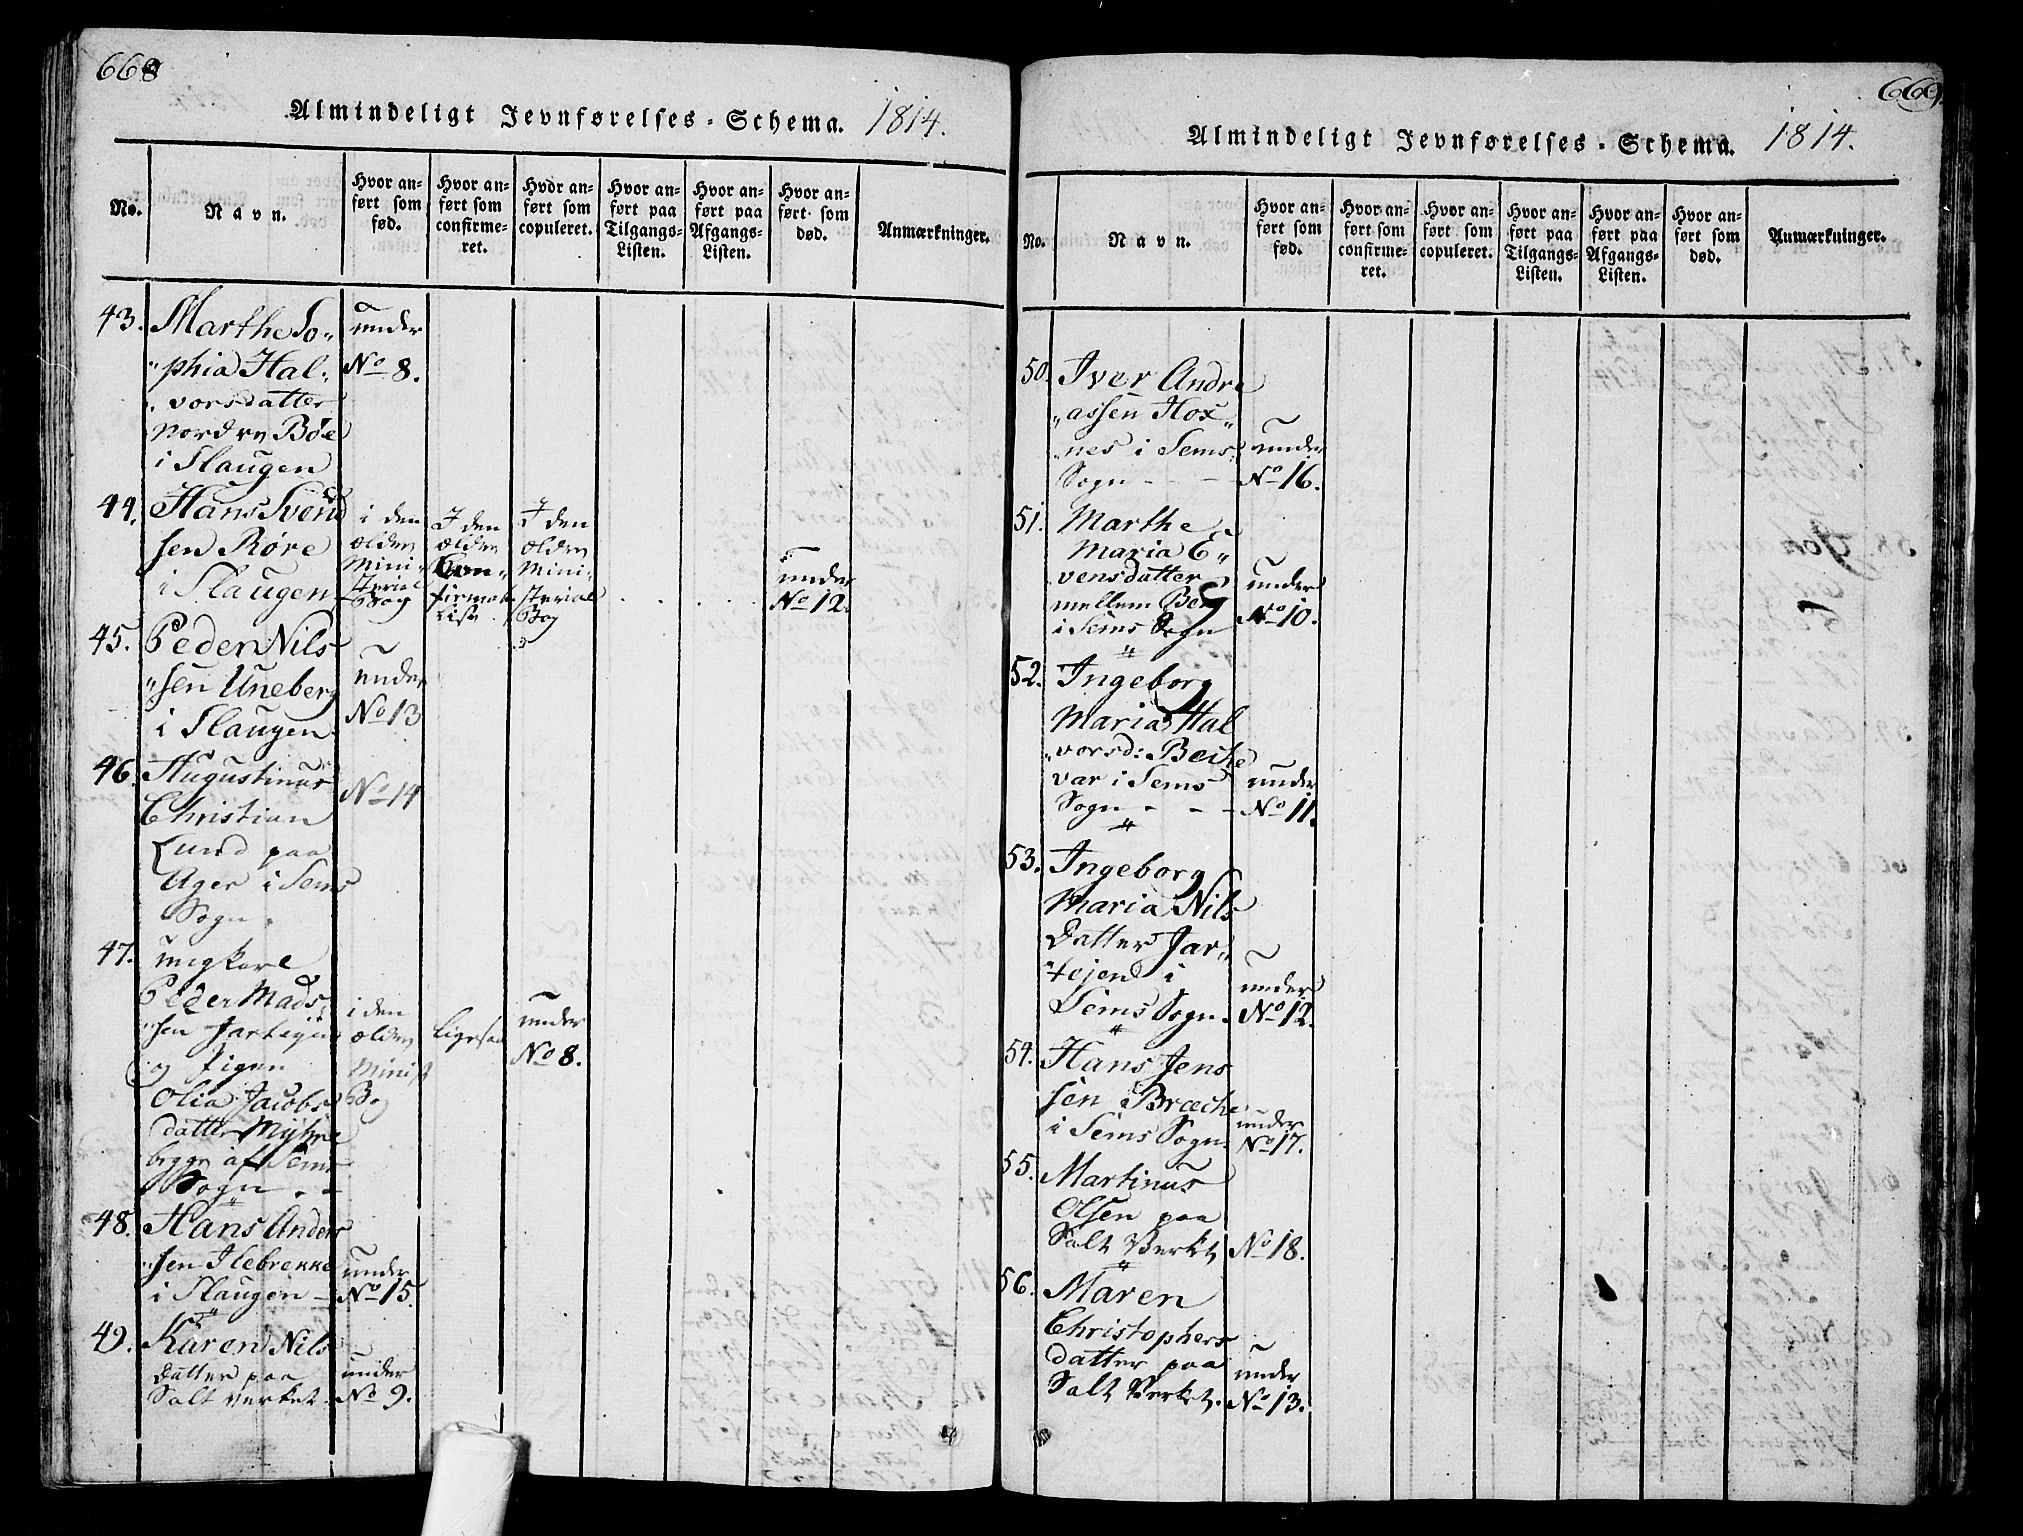 668
Almindeligt Jevnførelses-Schema. 1814.
No.
Navn.
Hvor an-
ført som
fød.
Hvor an-
ført som
confirme-
ret.
Hvor an-
ført som
copuleret.
Hvor an-
ført paa
Tilgangs-
Listen.
Hvor an-
ført paa
Afgangs-
Listen.
Hvor an-
ført som
død.
Anmærkninger.
43. Marthe So„
„phia Hal„
vorsdatter
nordre Bøe
i Slaugen
under
No 8.
44. Hans Svend
sen Røre
i Slaugen
i den
ælden
Mini-
sterial
Bog
I den
ælden
Con-
firmat.
List.
I den
ælden
Mini-
sterial
Bog
under
No 12.
45. Peder Nils
„sen Uneberg
i Slaugen
under
No 13
46. Augustinus
Christian
Lund paa
Ager i Sems
Sogn.
No 14
47. ungkarl
Peder Mads
„sen Jartøjen
og Pigen
Olia Jacobs
datter Myhre
begge af Sems
Sogn
i den
ælden
Minist
Bog
ligesaa
under
No 8.
48. Hans Anders
„sen Ilebrekke
i Slaugen
under
No 15.
49. Karen Nils
datter paa
Salt verket.
under
No 9.
669.
Almindeligt Jevnførelses-Schema. 1814.
No.
Navn.
Hvor an-
ført som
fød.
Hvor an-
ført som
confirme-
ret.
Hvor an-
ført som
copuleret.
Hvor an-
ført paa
Tilgangs-
Listen.
Hvor an-
ført paa
Afgangs-
Listen.
Hvor an-
ført som
død.
Anmærkninger.
50. Iver Andre
„assen Hox„
„nes i Sems
Sogn - - -
under
No 16.
51. Marthe
Maria E„
vensdatter
mellem Berg
i Sems Sogn
under
No 10.
52. Ingeborg
Maria Hal
„vorsd: Beche
var i Sems
Sogn - - -
under
No 11.
53. Ingeborg
Maria Nils
Datter Jar„
„tøjen i
Sems Sogn.
under
No 12.
54. Hans Jens
sen Bræche
i Sems Sogn.
under
No 17.
55. Martinus
Olsen paa
Salt Verket
No 18.
56. Maren
Christophers
datter paa
Salt Verket.
under
No 13.